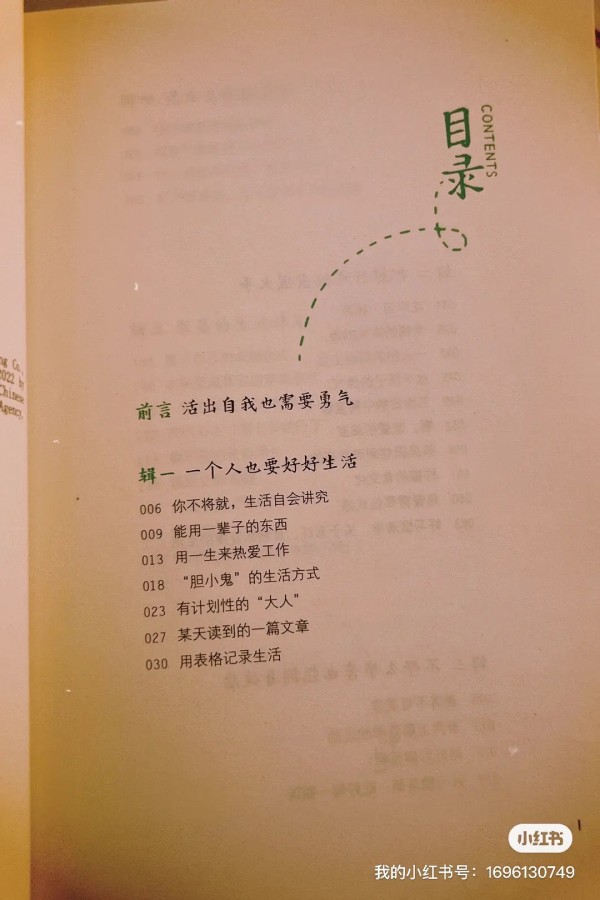 目录
CONTENTS
前言 活出自我也需要勇气
辑一 一个人也要好好生活
006 你不将就，生活自会讲究
009 能用一辈子的东西
013 用一生来热爱工作
018 “胆小鬼”的生活方式
023 有计划性的“大人”
027 某天读到的一篇文章
030 用表格记录生活
ng Co.,
2022 by
Chinese
Agency,
1
小红书
我的小红书号：1696130749